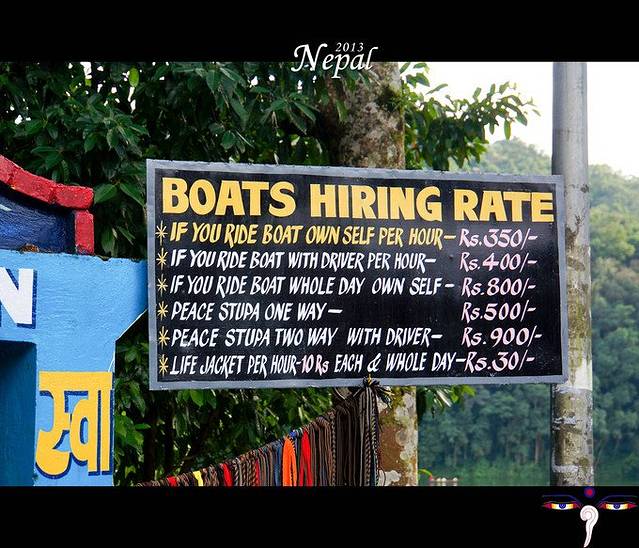 2013
Nepal
BOATS HIRING RATE
* IF YOU RIDE BOAT OWN SELF PER HOUR- Rs.350/-
* IF YOU RIDE BOAT WITH DRIVER PER HOUR- Rs.400/-
* IF YOU RIDE BOAT WHOLE DAY OWN SELF - Rs.800/-
* PEACE STUPA ONE WAY - Rs.500/-
* PEACE STUPA TWO WAY WITH DRIVER- Rs.900/-
* LIFE JACKET PER HOUR-10 Rs EACH & WHOLE DAY-Rs.30/-
N
स्वा